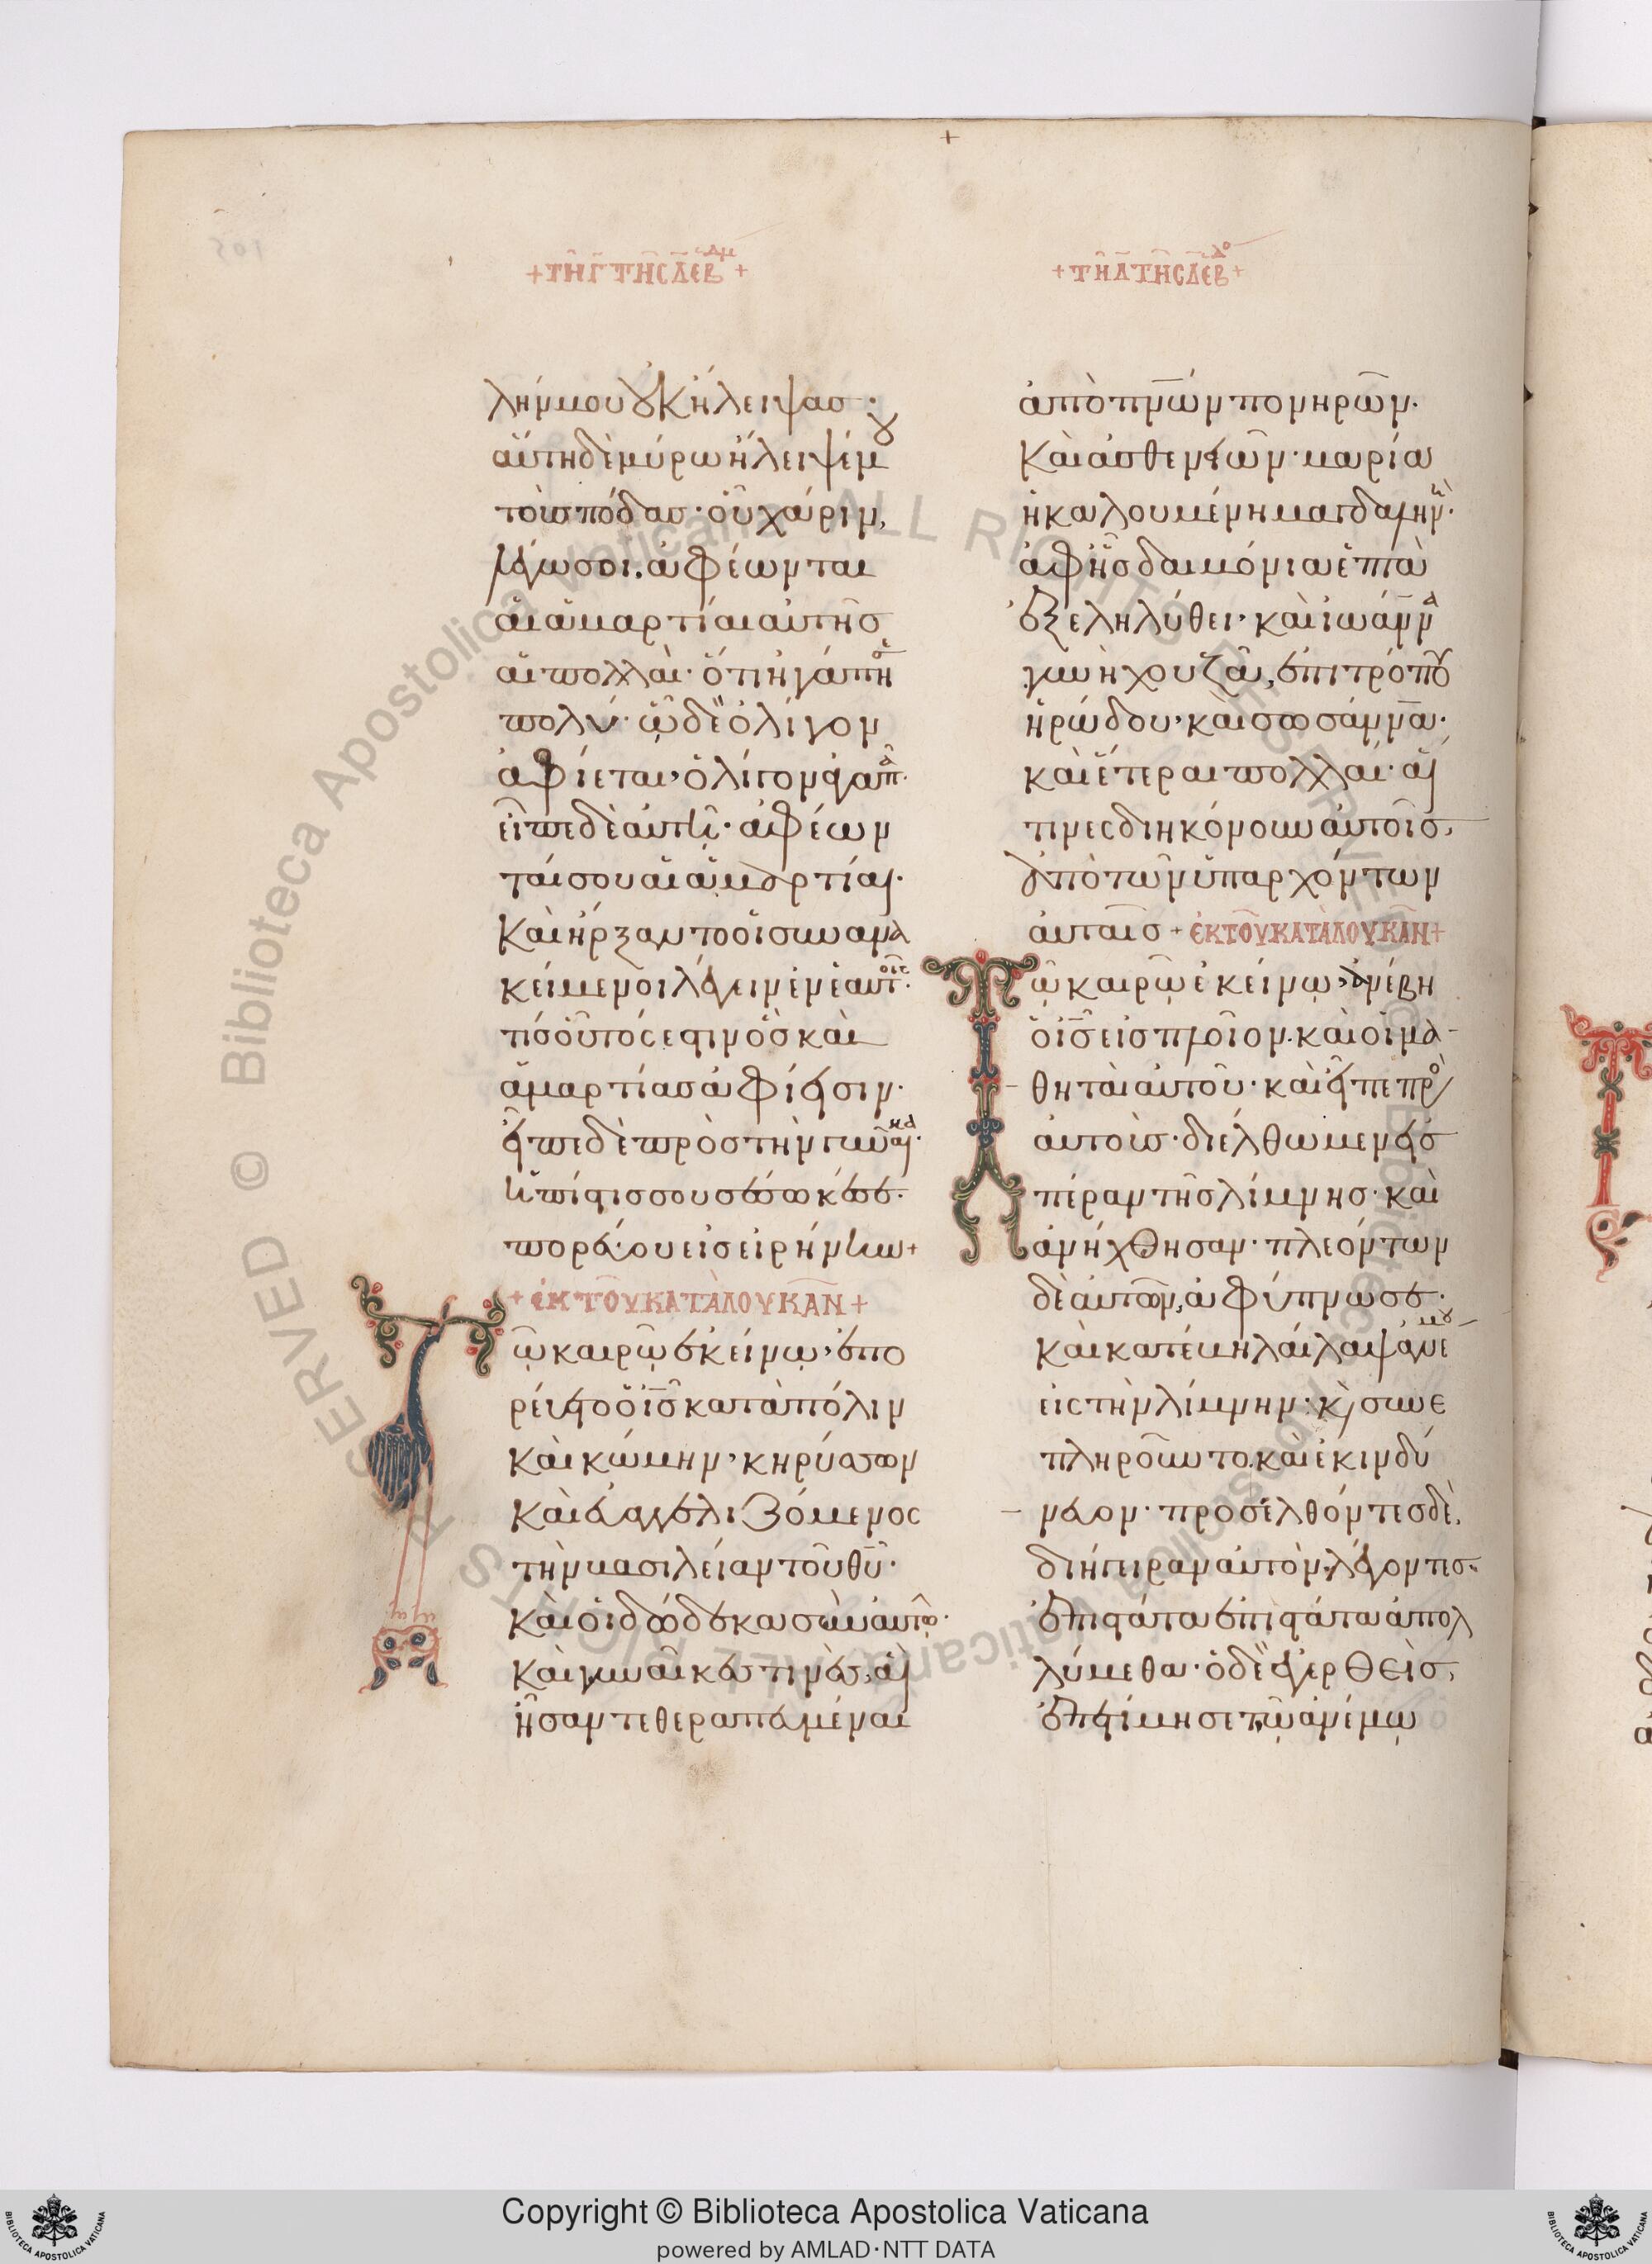 +ΤΗ Γ ΤΗC Δ ΕΒΔΜ+
λήμμου οὐκ ἤλειψασ·
αὕτη δὲ μύρω ἤλειψέμ
τοὺσ πόδασ· οὗ χάριν,
λέγω σοι, ἀφέωνται
αἱ ἁμαρτίαι αὐτῆσ
αἱ πολλαί· ὅτι ἠγάπησε
πολύ· ᾧ δὲ ὀλίγον
ἀφίεται, ὀλίγον ἀγαπᾶ·
εἶπε δὲ αὐτῆ· ἀφέων
ταί σου αἱ ἁμαρτίαι·
Καὶ ἤρξαντο οἱ συνανα
κείμενοι λέγειν ἐν ἑαυτοῖς·
τίσ οὗτός ἐστιν ὃσ καὶ
ἁμαρτίασ ἀφίησιν·
εἶπε δὲ πρὸσ τὴν γυναῖκα·
ἡ πίστισ σου σέσωκέ σε·
πορεύου εἰσ εἰρήνην+
+ἐκ ΤΟῦ ΚΑΤᾺ ΛΟΥΚᾶΝ+
Τῶ καιρῶ ἐκείνω, ἐπο
ρεύετο ὁ ισ κατὰ πόλιν
Καὶ κώμην, κηρύσσων
Καὶ εὐαγγελιζόμενος
τὴν βασιλείαν τοῦ θυ·
Καὶ οἱ δώδεκα σὺν αὐτῶ·
Καὶ γυναῖκεσ τινέσ, αἳ
ἦσαν τεθεραπευμέναι
+ΤΗ Δ ΤΗC Δ ΕΒΔΟ+
ἀπὸ πνῶν πονηρῶν·
Καὶ ἀσθενειῶν· μαρία
ἡ καλουμένη μαγδαληνὴ·
ἀφ' ἧσ δαιμόνια ἑπτὰ
ἐξεληλύθει· καὶ ἰωάννα
γυνὴ χουζᾶ, ἐπιτρόπου
ἡρώδου· καὶ σωσάννα·
καὶ ἕτεραι πολλαί· αἵ
τινες διηκόνουν αὐτοῖσ,
ἀπὸ τῶν ὑπαρχόντων
αὐταῖσ + ἐΚ ΤΟῦ ΚΑΤᾺ ΛΟΥΚᾶΝ+
Τῶ καιρῶ ἐκείνω, ἀνέβη
ὁ ισ εἰσ πλοῖον· καὶ οἱ μα
θηταὶ αὐτοῦ· καὶ εἶπε πρὸ
αὐτούσ· διέλθωμεν εἰσ
πέραν τῆσ λίμνησ· καὶ
ἀνήχθησαν· πλεόντων
δὲ αὐτῶν, ἀφύπνωσε·
Καὶ κατέβη λαίλαψ ἀνέμου
εἰς τὴν λίμνην· κὶ συνε
πληροῦντο, καὶ ἐκινδύ
νευον· προσελθόντεσ δὲ,
διήγειραν αὐτὸν, λέγοντεσ·
ἐπιστάτα ἐπιστάτα ἀπολ
λύμεθα· ὁ δὲ ἐγερθεὶσ,
ἐπετίμησε τῶ ἀνέμω
Copyright © Biblioteca Apostolica Vaticana
powered by AMLAD·NTT DATA